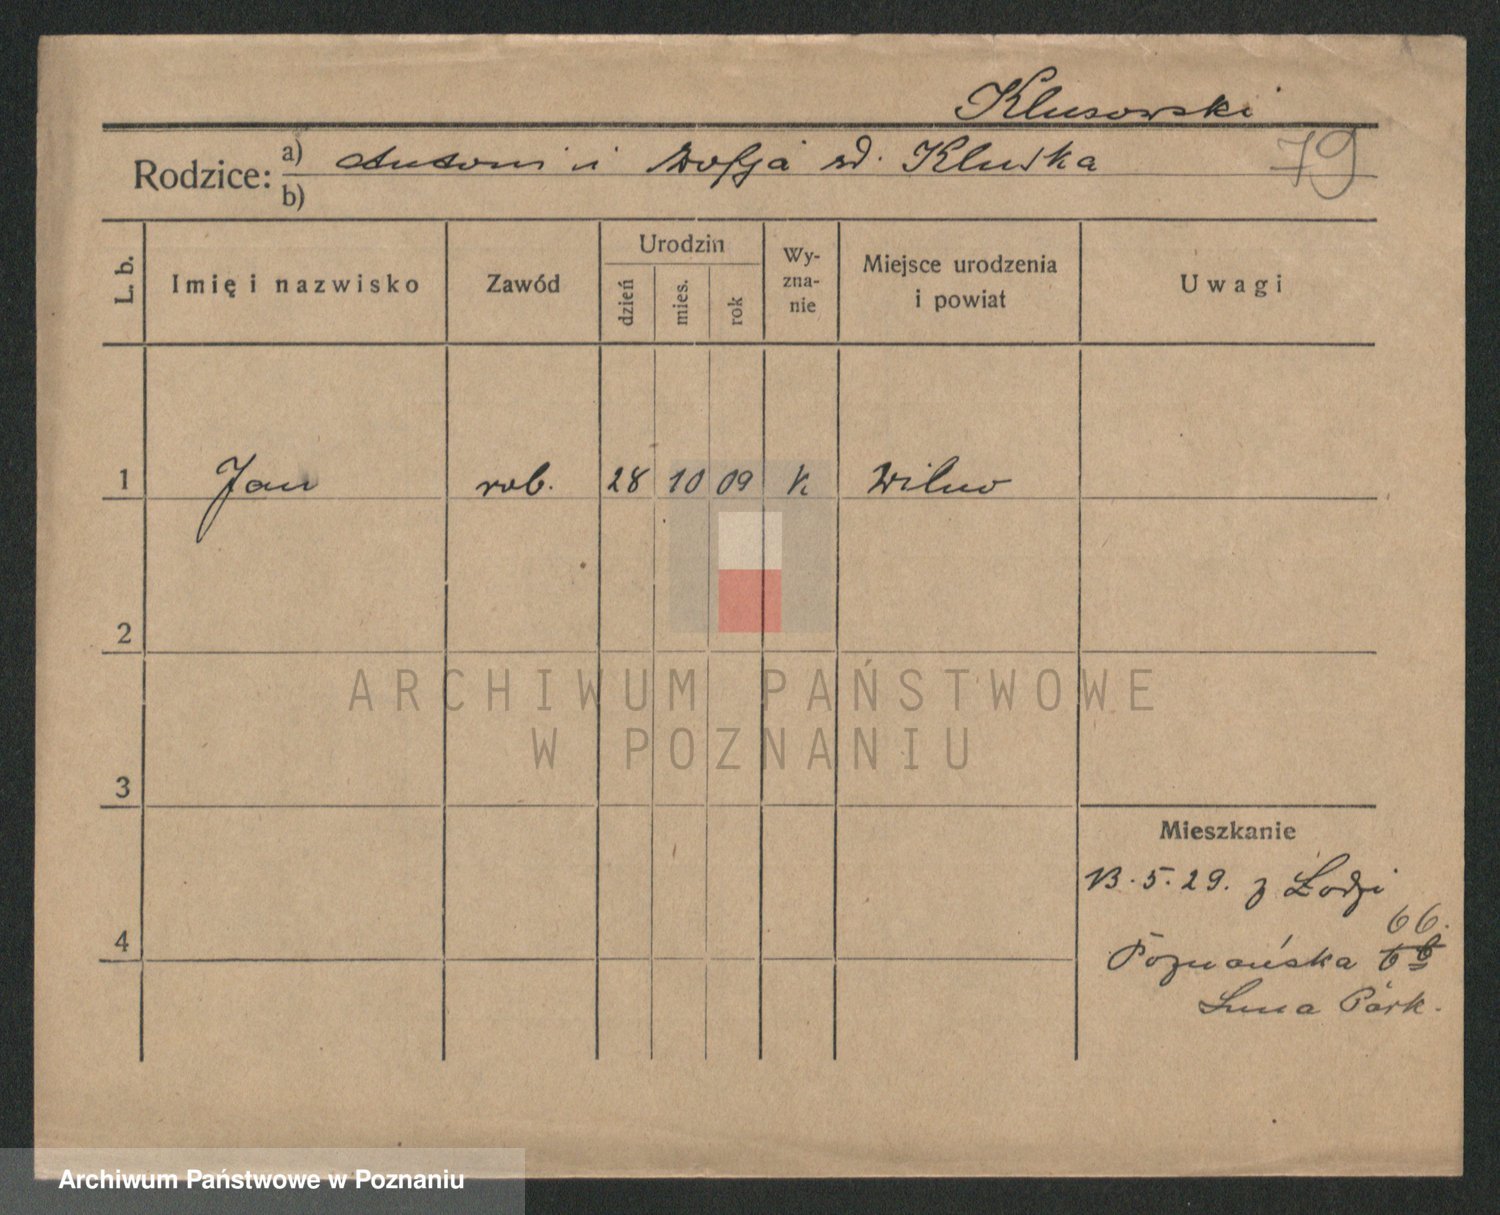 Klusowski
Rodzice: a) Antoni i Zofja zd. Kluska
79
b)
L. b.
Imię i nazwisko
Zawód
Urodzin
dzień
mies.
rok
Wy-
zna-
nie
Miejsce urodzenia
i powiat
Uwagi
1 Jan rob. 28 10 09 k Wilno
2
ARCHIWUM PAŃSTWOWE
W POZNANIU
3
Mieszkanie
13.5.29. z Łodzi
66.
4
Poznańska
Luna Park.
Archiwum Państwowe w Poznaniu